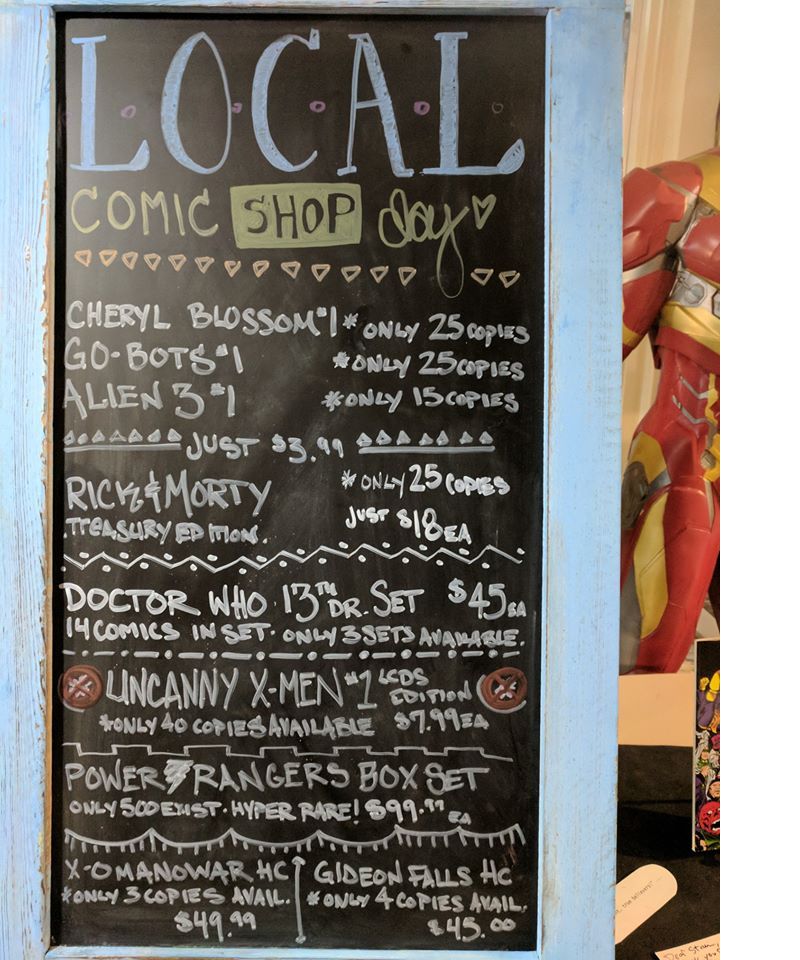 LOCAL
COMIC SHOP day
CHERYL BLOSSOM #1 * ONLY 25 COPIES
GO-BOTS #1 * ONLY 25 COPIES
ALIEN 3 #1 * ONLY 15 COPIES
JUST $3.99
RICK & MORTY * ONLY 25 COPIES
TREASURY EDITION. JUST $18 EA
DOCTOR WHO 13TH DR. SET $45 EA
14 COMICS IN SET · ONLY 3 SETS AVAILABLE.
UNCANNY X-MEN #1 LCDS EDITION
*ONLY 40 COPIES AVAILABLE $7.99 EA
POWER RANGERS BOX SET
ONLY 500 EXIST · HYPER RARE! $99.99 EA
X-O MANOWAR HC
*ONLY 3 COPIES AVAIL.
$49.99
GIDEON FALLS HC
* ONLY 4 COPIES AVAIL.
$45.00